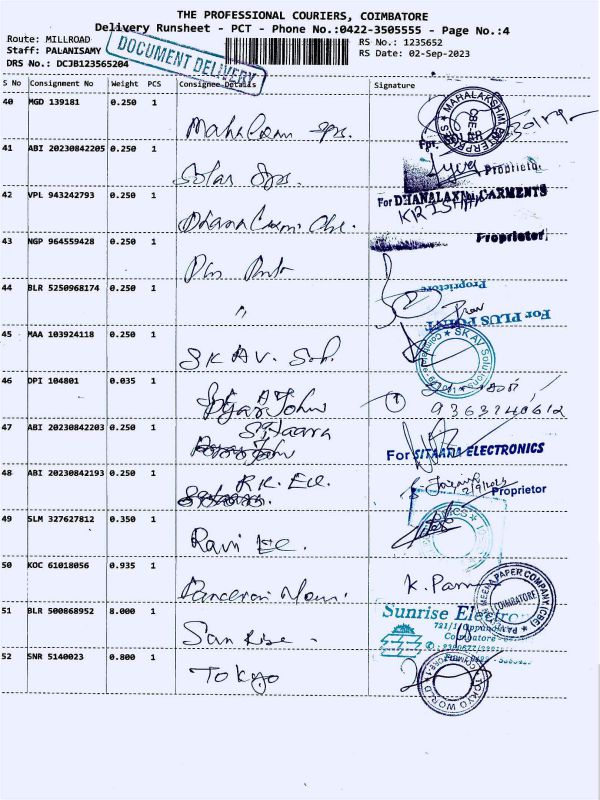 THE PROFESSIONAL COURIERS, COIMBATORE
Delivery Runsheet - PCT - Phone No.:0422-3505555 - Page No.:4
Route: MILLROAD
RS No.: 1235652
Staff: PALANISAMY
RS Date: 02-Sep-2023
DRS No.: DCJB123565204
DOCUMENT DELIVERY
S No Consignment No Weight PCS Consignee Details Signature
40 MGD 139181 0.250 1
MAHALAKSHMI ENTERPRISES
41 ABI 20230842205 0.250 1 Solar
Proprietor
42 VPL 943242793 0.250 1
For DHANALAXMI GARMENTS
43 NGP 964559428 0.250 1
Proprietor
44 BLR 5250968174 0.250 1 "
Proprietore
For PLUS POINT
45 MAA 103924118 0.250 1 SKAV. Sol.
SK AV Solutions
46 DPI 104801 0.035 1 John
9363740612
47 ABI 20230842203 0.250 1 Sitaara
For SITAARA ELECTRONICS
48 ABI 20230842193 0.250 1 R.K. Ele.
2/9/2023 Proprietor
49 SLM 327627812 0.350 1 Ravi Ele.
50 KOC 61018056 0.935 1
K. Pann
MEENA PAPER COMPANY (CBE)
COIMBATORE
51 BLR 500868952 8.000 1 Sun Rise
Sunrise Electro
721/1, Oppanakara
Coimbatore
52 SNR 5140023 0.800 1 TOKYO
TOKYO WORLD